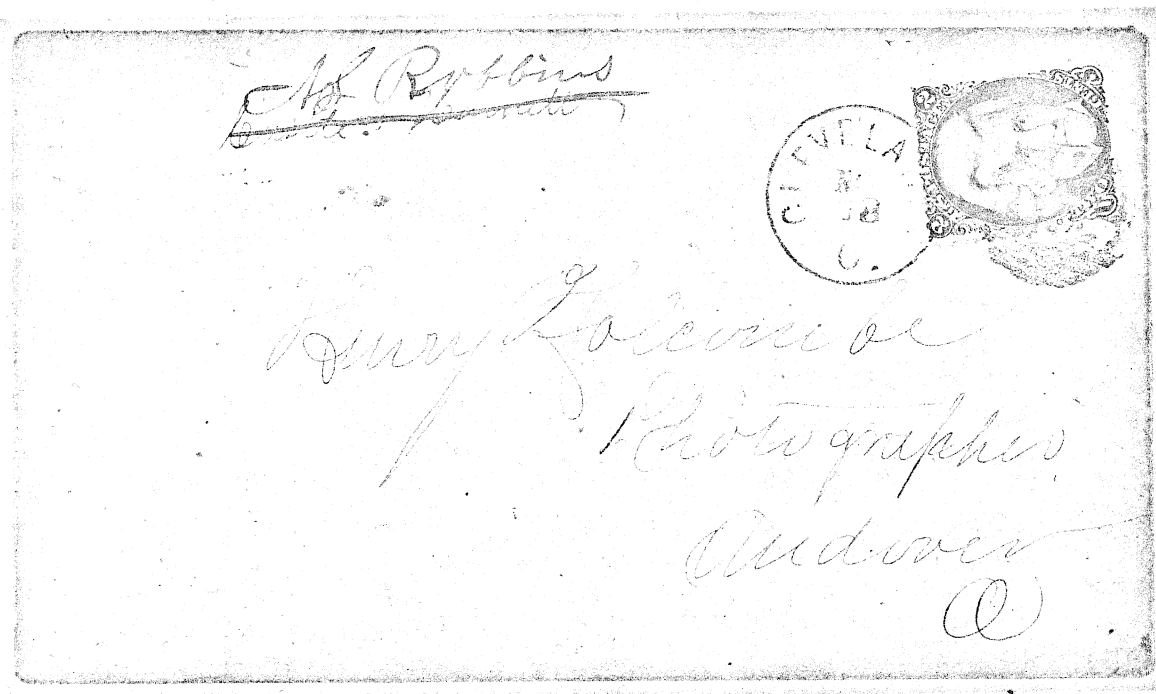 Robbins
CLEVELA
18
O.
Henry Holcombe
Photographer
Andover
O